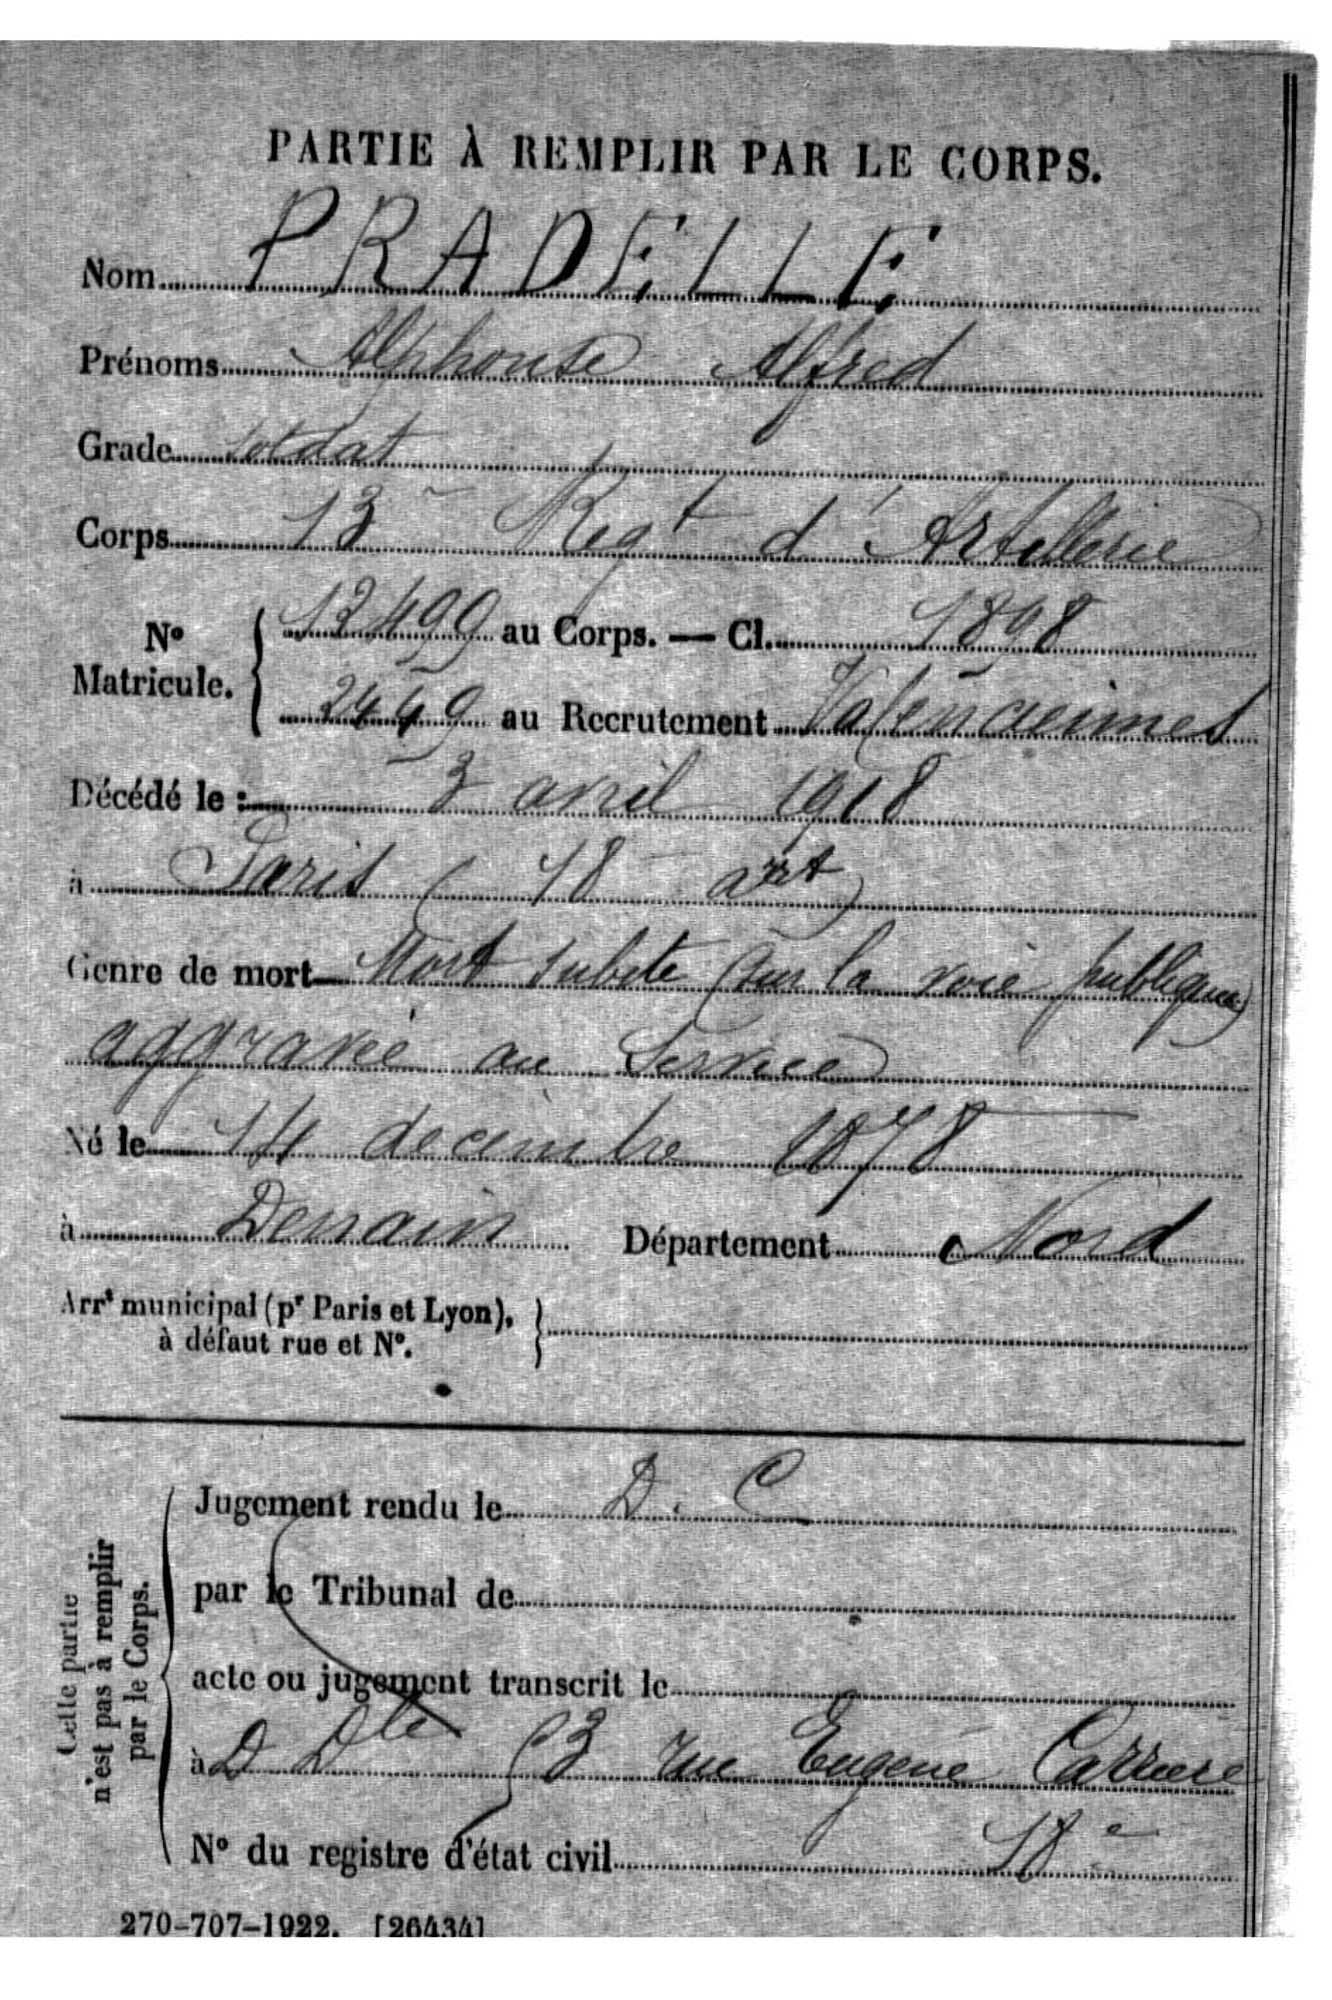 PARTIE À REMPLIR PAR LE CORPS.
Nom PRADELLE
Prénoms Alphonse Alfred
Grade soldat
Corps 13e Regt d'Artillerie
No Matricule. 13499 au Corps. — Cl. 1898
2449 au Recrutement Valenciennes
Décédé le : 3 avril 1918
à Paris (18e arrt)
Genre de mort Mort subite (sur la voie publique)
aggravée au Service
Né le 14 decembre 1878
à Denain Département Nord
Arrt municipal (pr Paris et Lyon),
à défaut rue et No.
Cette partie n'est pas à remplir par le Corps.
Jugement rendu le D. C
par le Tribunal de
acte ou jugement transcrit le
à D Dle 53 rue Eugene Carriere
No du registre d'état civil 18e
270-707-1922. [26434]